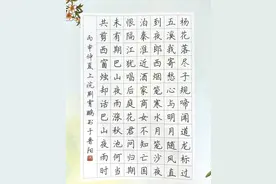 杨花落尽子规啼闻道龙标过
五溪我寄愁心与明月随风直
到夜郎西烟笼寒水月笼沙夜
泊秦淮近酒家商女不知亡国
恨隔江犹唱后庭花君问归期
未有期巴山夜雨涨秋池何当
共剪西窗烛却话巴山夜雨时
丙申仲夏上浣荆霄鹏书于晋阳